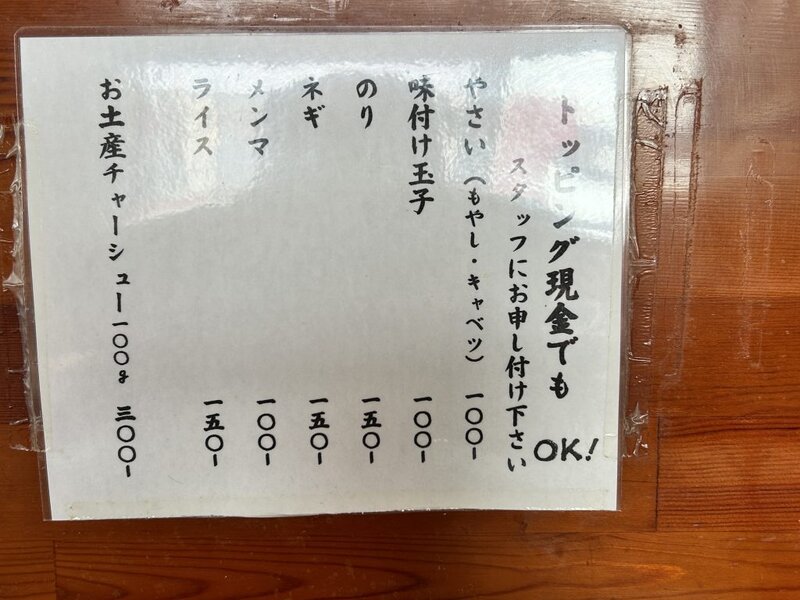 トッピング現金でも OK!
スタッフにお申し付け下さい
やさい（もやし・キャベツ） 一〇〇-
味付け玉子 一〇〇-
のり 一五〇-
ネギ 一五〇-
メンマ 一〇〇-
ライス 一五〇-
お土産チャーシュー一〇〇g 三〇〇-